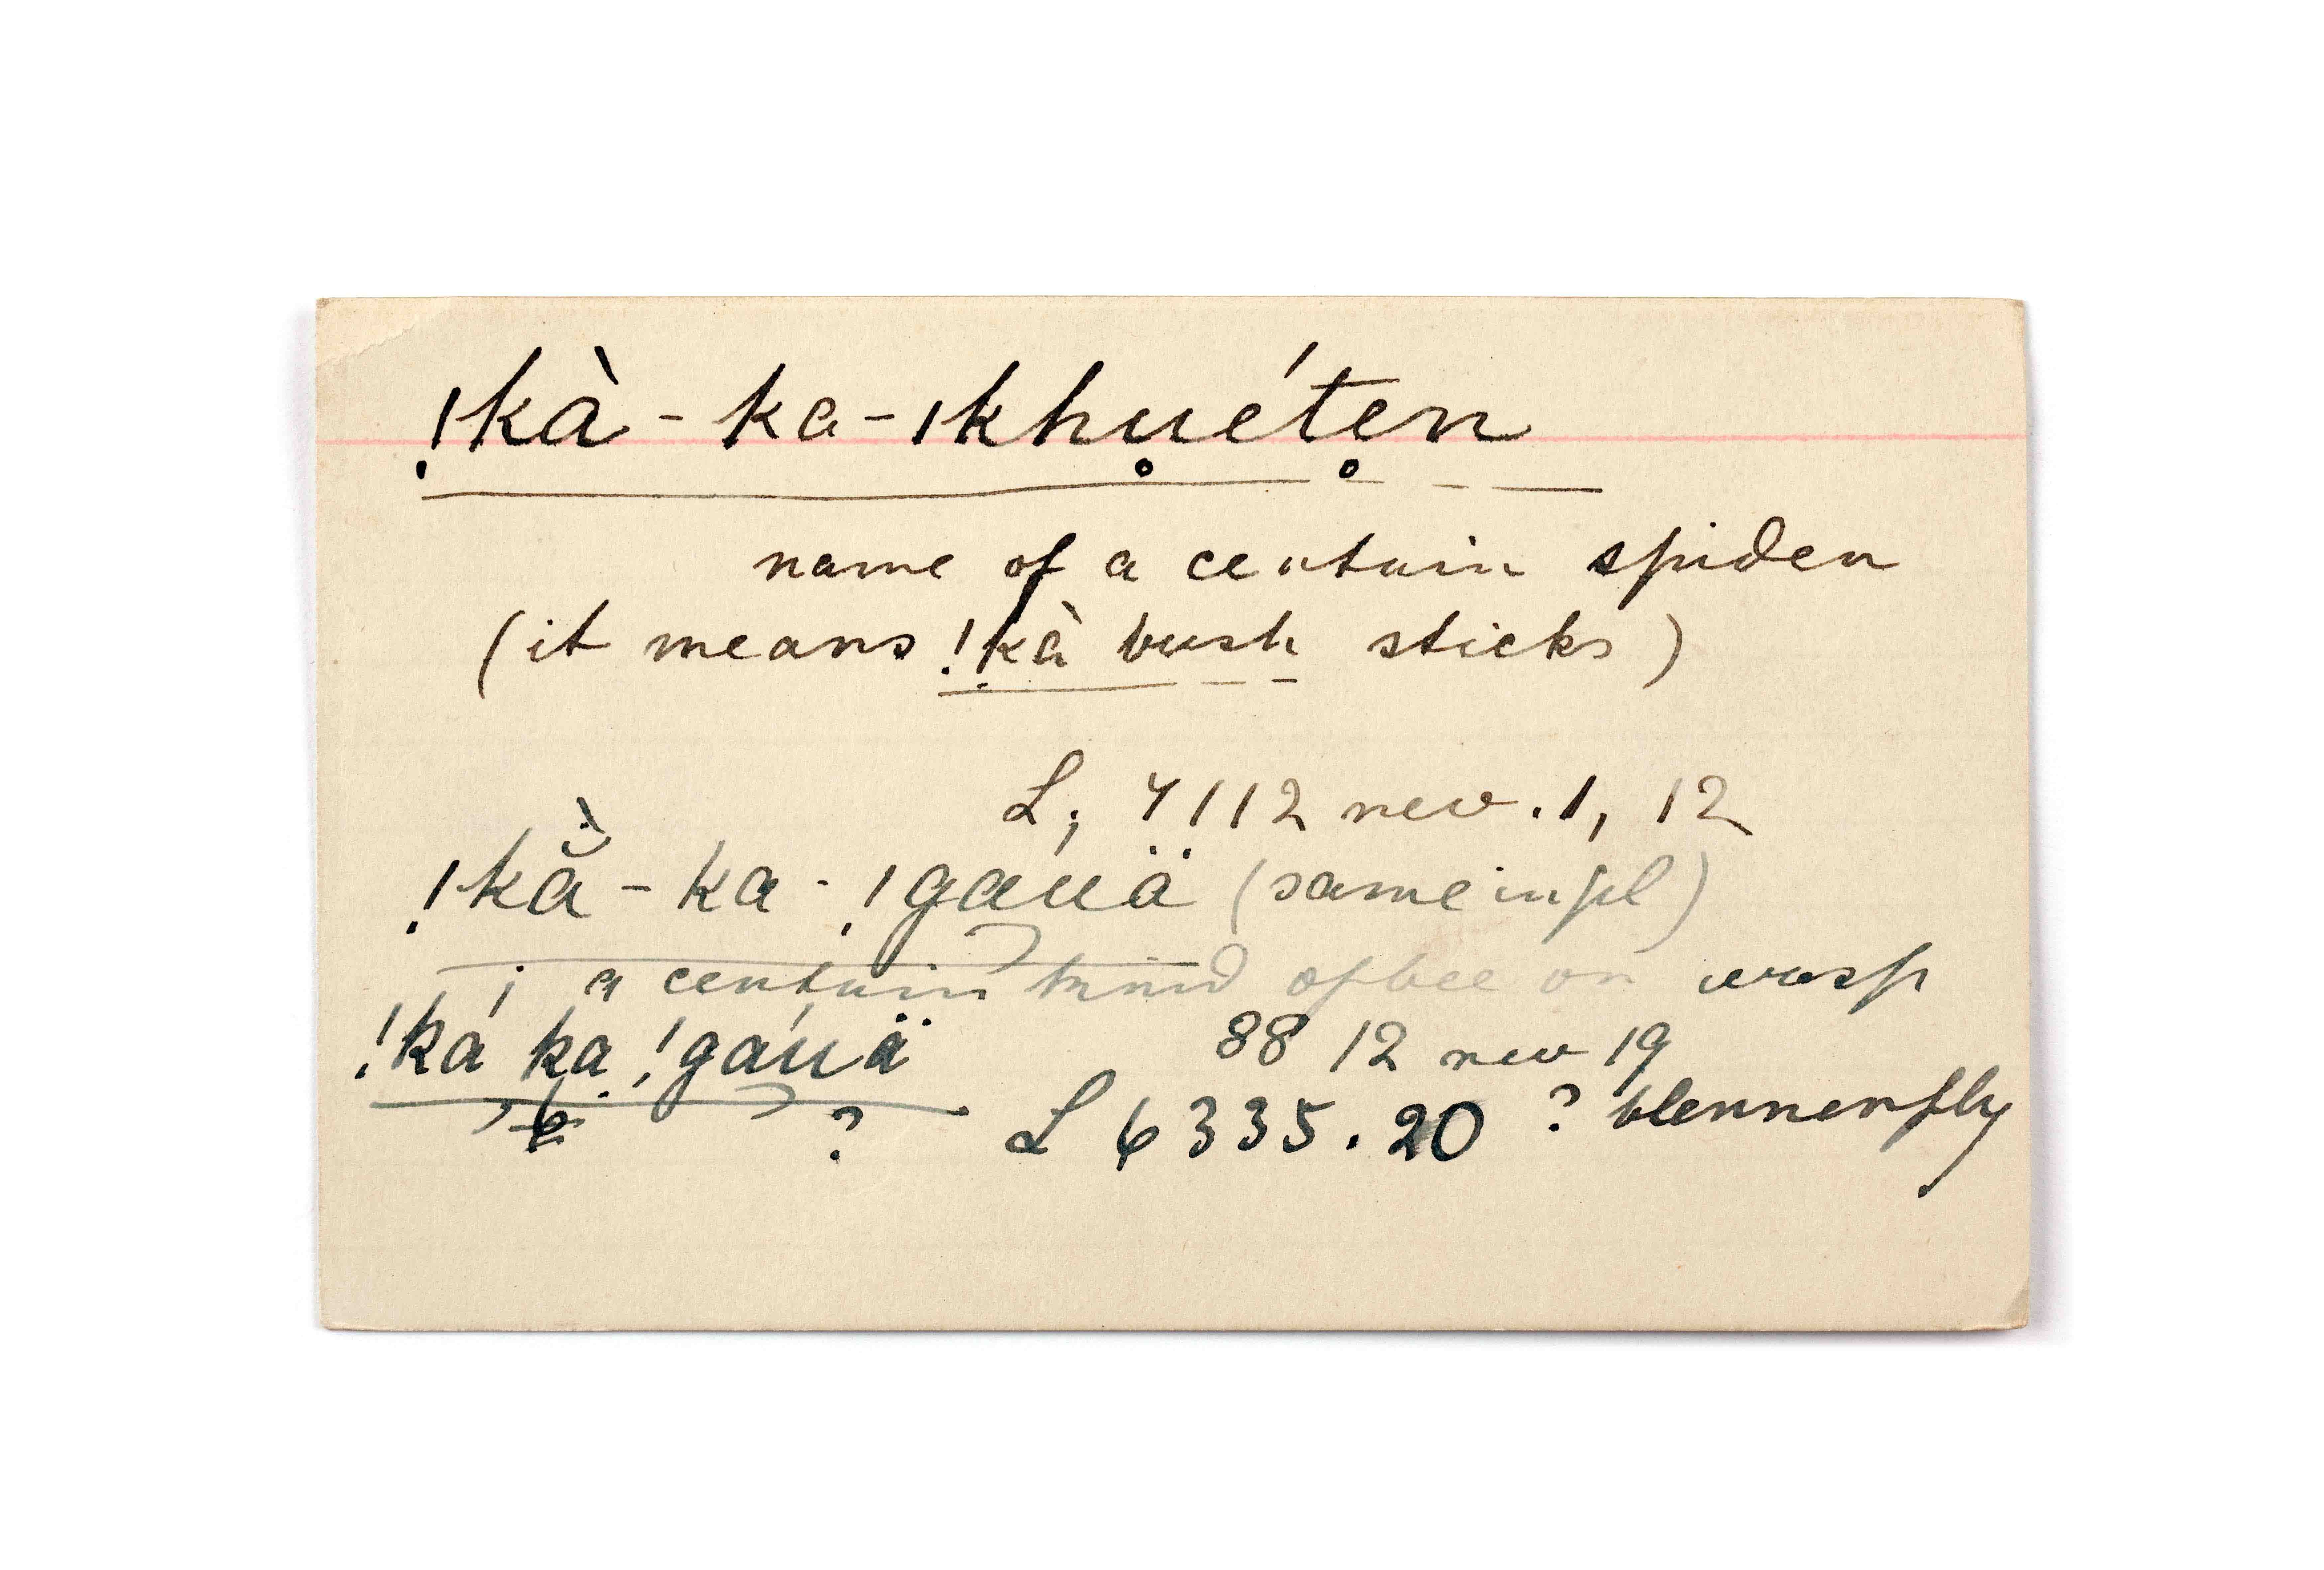 !kà-ka-ǀkhu̥éte̥n
name of a certain spider
(it means !k̩à bush sticks)
L, 7112 rev. 1, 12
!kằ-ka-!gáuä (same in pl)
a certain kind of bee or wasp
!ká ka !gáuä 88 12 rev 19
? L 6335.20 ? blennerfly